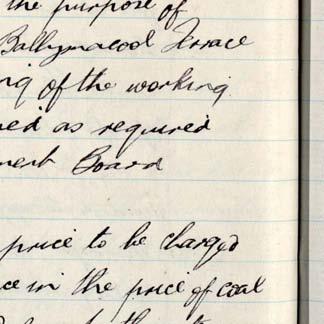 the purpose of
Ballymacool Terrace
ng of the working
ned as required
ment Board
price to be charged
ce in the price of coal